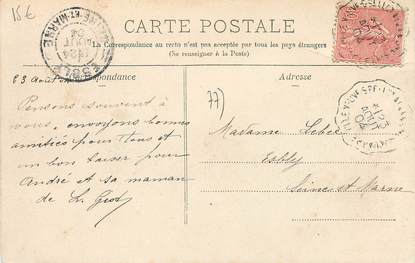 15€
CARTE POSTALE
La Correspondance au recto n'est pas acceptée par tous les pays étrangers
(Se renseigner à la Poste)
Correspondance
Adresse
23 Août
Pensons souvent à
vous, envoyons bonnes
amitiés pour tous et
un bon baiser pour
André et sa maman
de
77)
Madame Lebel
Esbly
Seine et Marne
SEINE-ET-MARNE
ESBLY